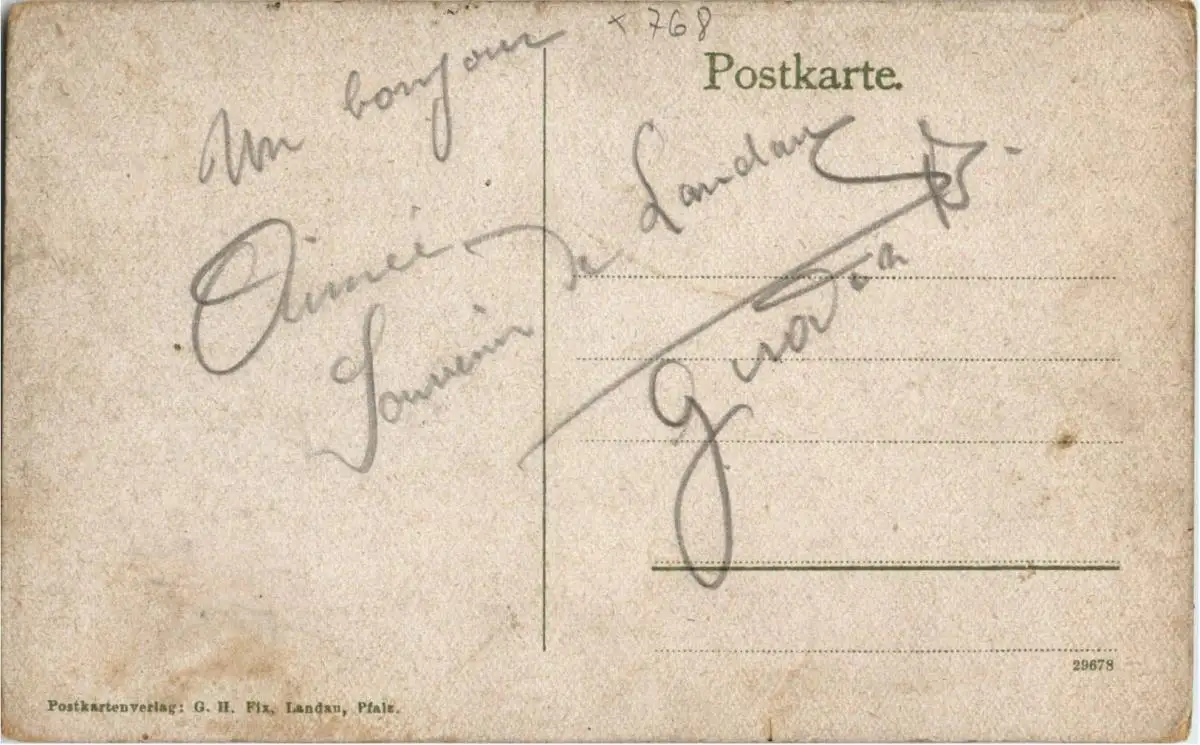 x 768
Postkarte.
Un bonjour
Aimée
Souvenir de Landau
29678
Postkartenverlag: G. H. Fix, Landau, Pfalz.